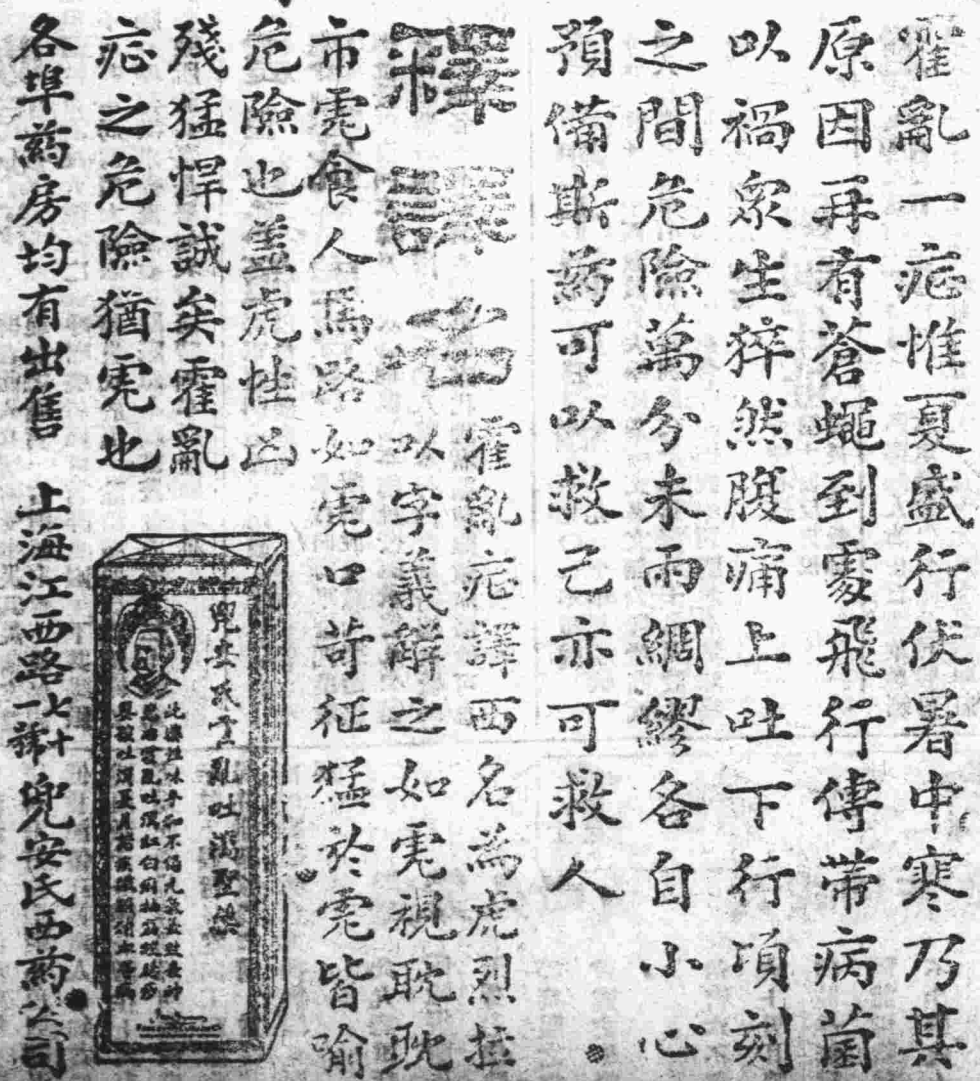 霍亂一症惟夏盛行伏暑中寒乃其
原因再有蒼蠅到處飛行傳帶病菌
以禍眾生猝然腹痛上吐下行頃刻
之間危險萬分未雨綢繆各自小心
預備斯药可以救己亦可救人
釋譯名
霍亂症譯西名為虎烈拉
以字義解之如虎視耽耽
市虎食人馬路如虎口苛征猛於虎皆喻
危險也盖虎性凶
殘猛悍誠矣霍亂
症之危險猶虎也
兜安氏霍亂吐瀉聖藥
各埠药房均有出售
上海江西路七十一號兜安氏西药公司